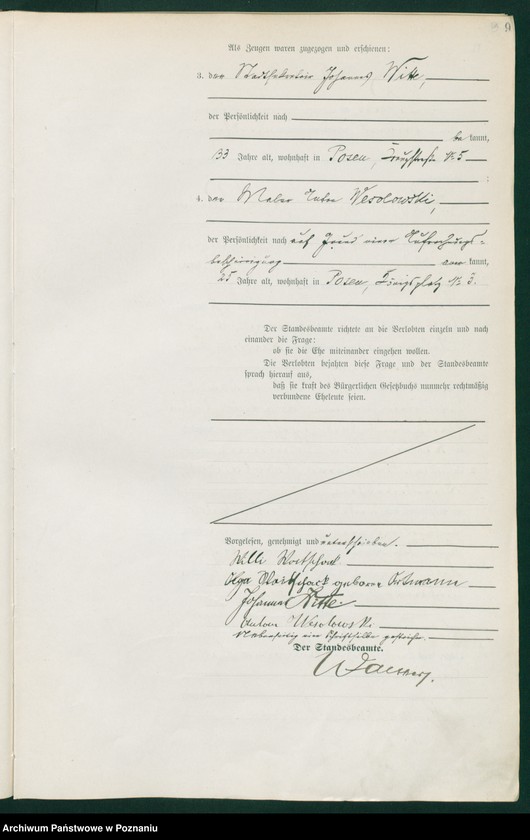 Als Zeugen waren zugezogen und erschienen:
3. der Stadtsekretär Johannes Witte,
der Persönlichkeit nach
be kannt,
33 Jahre alt, wohnhaft in Posen, Nr. 5
;
4. der Maler Anton Wesolowski,
der Persönlichkeit nach auf Grund einer Aufrechnungs-
bescheinigung aner kannt,
25 Jahre alt, wohnhaft in Posen, Königsplatz Nr. 3.
Der Standesbeamte richtete an die Verlobten einzeln und nach
einander die Frage:
ob sie die Ehe miteinander eingehen wollen.
Die Verlobten bejahten diese Frage und der Standesbeamte
sprach hierauf aus,
daß sie kraft des Bürgerlichen Gesetzbuchs nunmehr rechtmäßig
verbundene Eheleute seien.
Vorgelesen, genehmigt und unterschrieben.
Willi Woitschack
Olga Woitschack geborene Ortmann
Johannes Witte.
Anton Wesolowski
Nebenseitig ein Schriftsilbe gestrichen.
Der Standesbeamte.
Archiwum Państwowe w Poznaniu